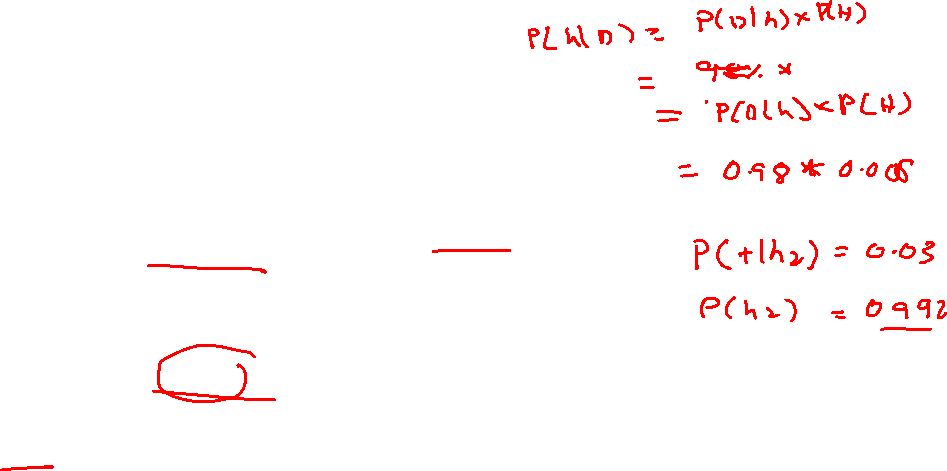 P(h|D) = P(D|h) × P(H)
= *
= P(D|h) × P(H)
= 0.98 * 0.008
P(+|h2) = 0.03
P(h2) = 0992